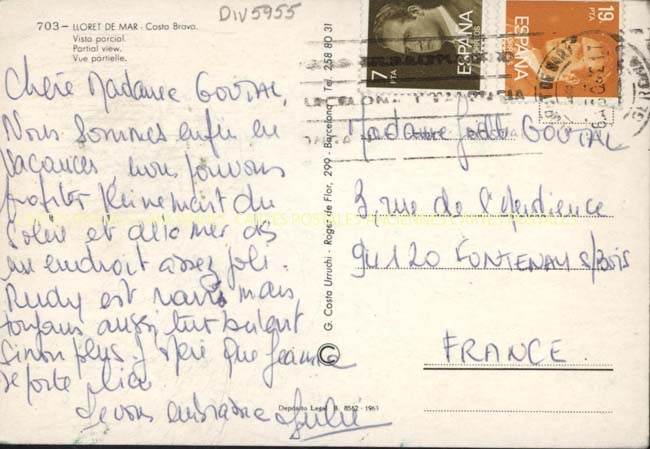 DIV5955
703 - LLORET DE MAR - Costa Brava
Vista parcial.
Partial view.
Vue partielle.
Chère Madame GOUTAL,
Nous sommes enfin en
vacances nous pouvons
profiter pleinement du
Soleil et de la mer ds
un endroit assez joli.
Rudy est ravi mais
toujours aussi turbulent
sinon plus. J'espère que Jeanne
se porte bien
Je vous embrasse
Depósito Legal B. 8562 - 1963
G. Costa Urruchi - Roger de Flor, 299 - Barcelona - Tel. 258 80 31
©
7
PTA
ESPAÑA
CORREOS
19
PTA
ESPAÑA
CORREOS
Madame GOUTAL
3, rue de l'Audience
94120 FONTENAY S/BOIS
FRANCE
CARTES POSTALES ANCIENNES